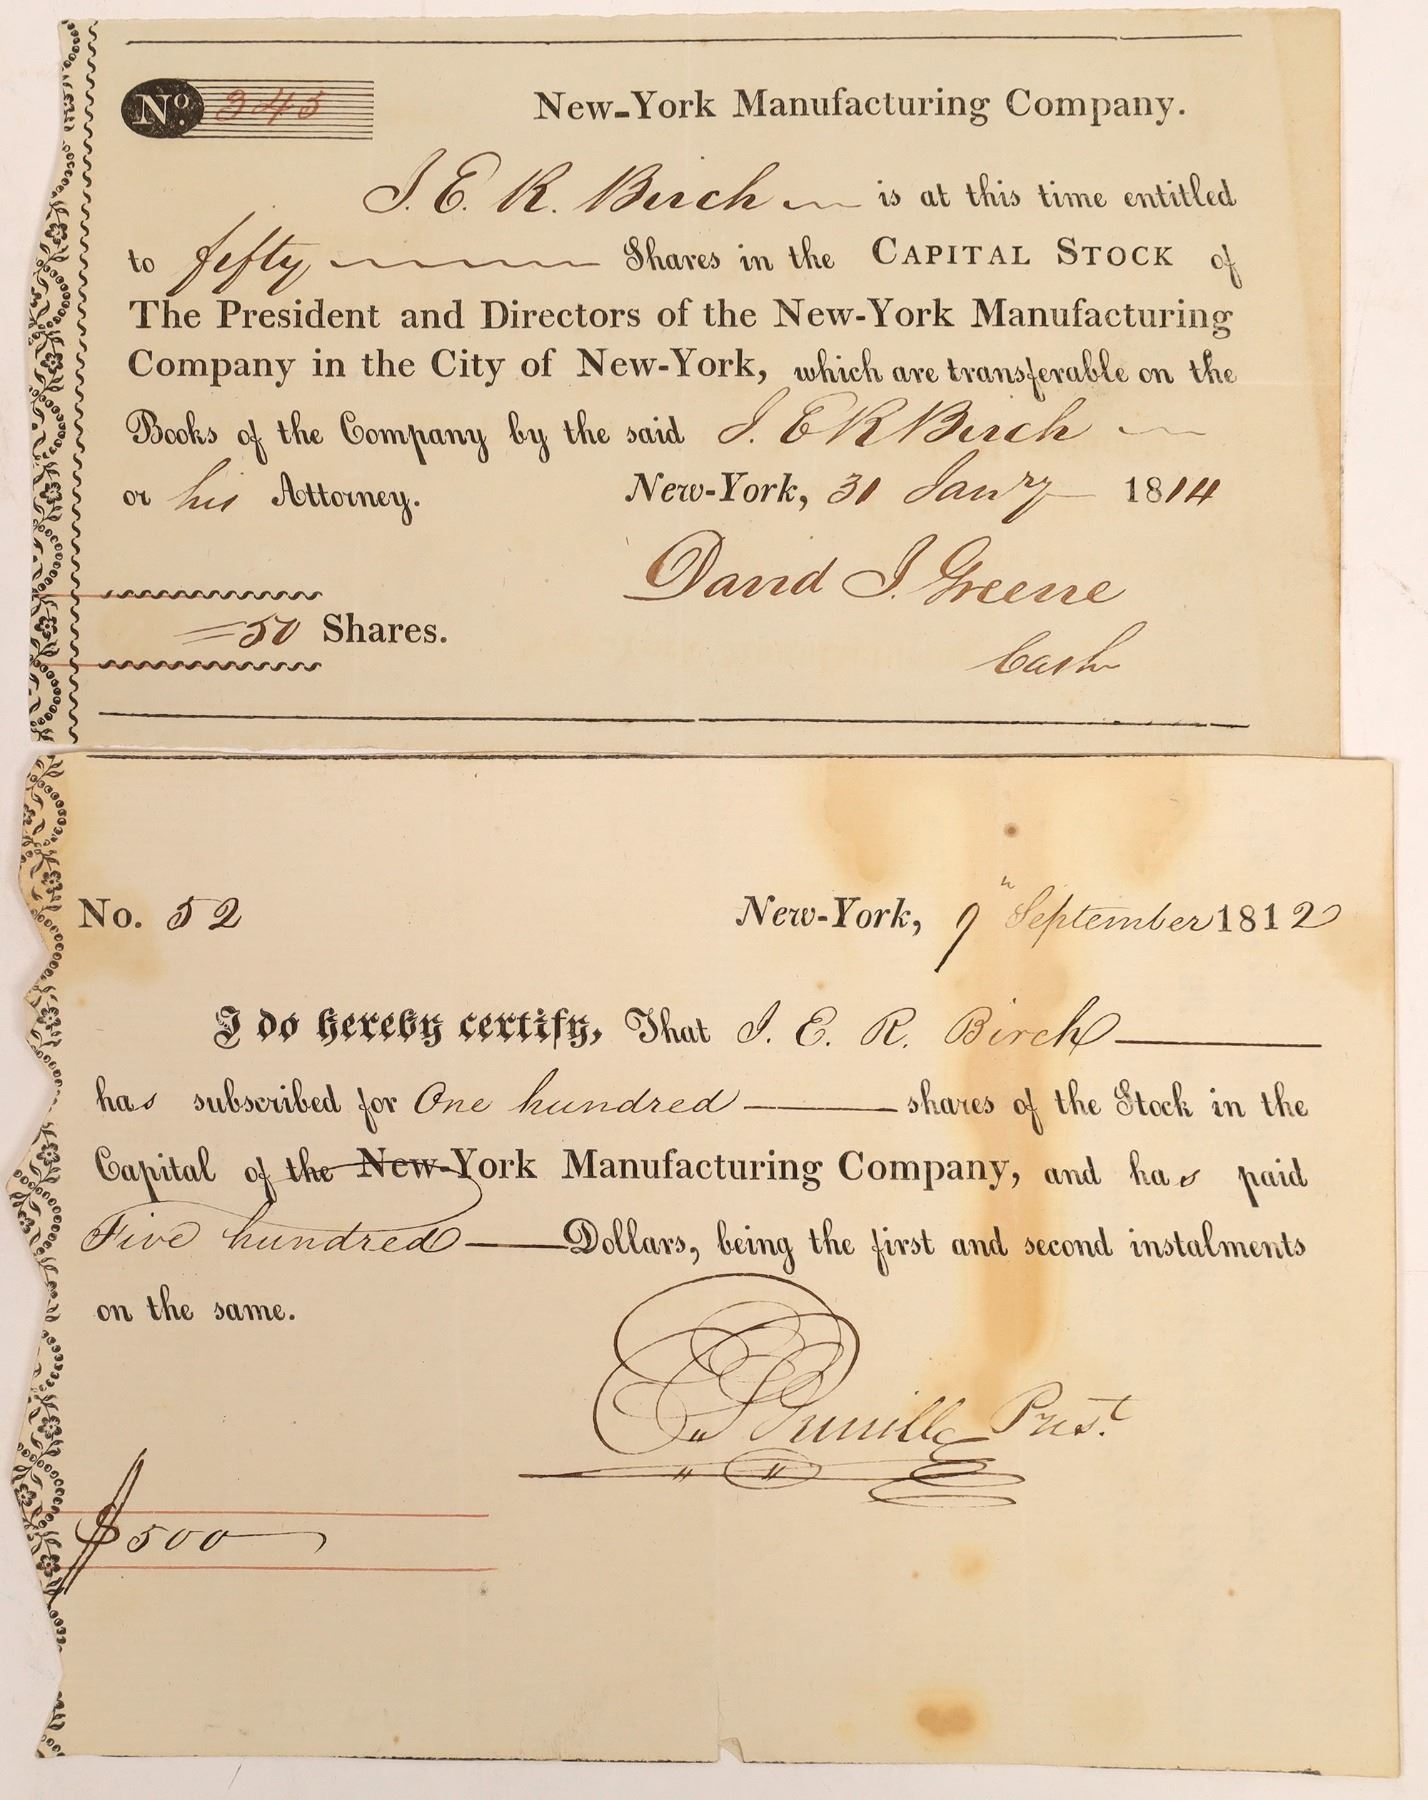 No. 345
New-York Manufacturing Company.
J. E. R. Birch is at this time entitled
to fifty Shares in the CAPITAL STOCK of
The President and Directors of the New-York Manufacturing
Company in the City of New-York, which are transferable on the
Books of the Company by the said J. E R Birch
or his Attorney. New-York, 31 Janry 1814
David I. Greene
50 Shares.
Cashr
No. 52 New-York, 9th September 1812
I do hereby certify, That J. E. R. Birch
has subscribed for One hundred shares of the Stock in the
Capital of the New-York Manufacturing Company, and has paid
Five hundred Dollars, being the first and second instalments
on the same.
Prest.
$500